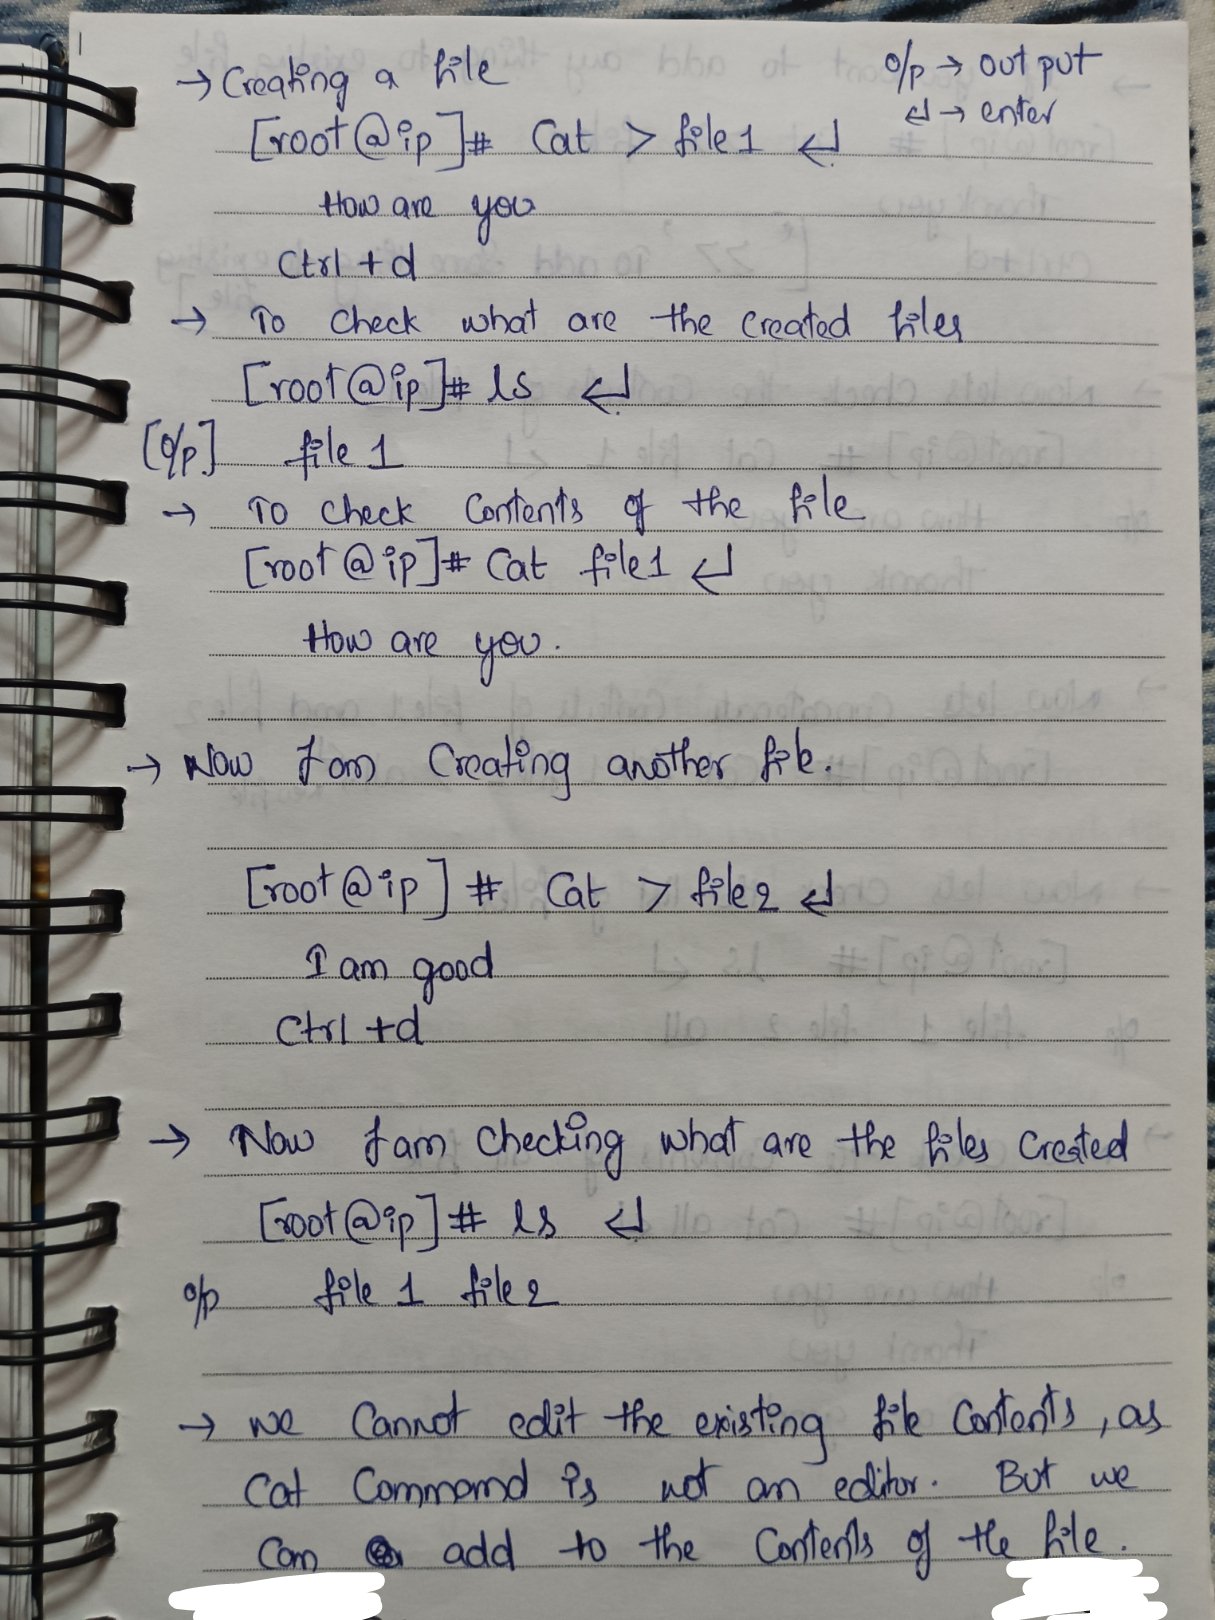 → Creating a file
o/p → output
↵ → enter
[root@ip]# Cat > file1 ↵
How are you
Ctrl + d
→ To check what are the created files
[root@ip]# ls ↵
[o/p] file 1
→ To check Contents of the file
[root@ip]# Cat file1 ↵
How are you.
→ Now I am Creating another file.
[root@ip] # Cat > file2 ↵
I am good
Ctrl + d
→ Now I am checking what are the files created
[root@ip]# ls ↵
o/p file 1 file 2
→ we Cannot edit the existing file Contents, as
Cat Command is not an editor. But we
Can add to the Contents of the file.